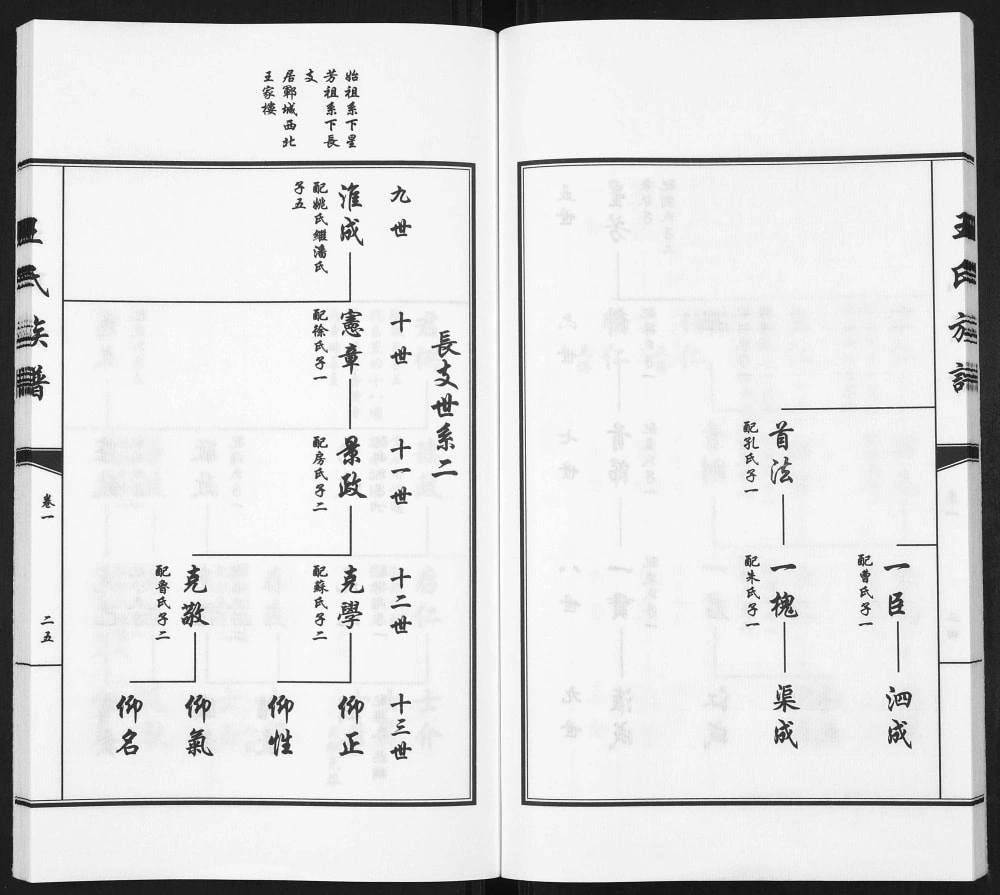 王氏族譜
一臣
配曹氏子一
泗成
首法
配孔氏子一
一槐
配朱氏子一
渠成
始祖系下星
芳祖系下長
支
居鄆城西北
王家樓
長支世系二
九世
十世
十一世
十二世
十三世
淮成
配姚氏繼潘氏
子五
憲章
配徐氏子一
景政
配房氏子二
克學
配蘇氏子二
仰正
仰性
克敬
配魯氏子二
仰氣
仰名
王氏族譜
卷一
二五